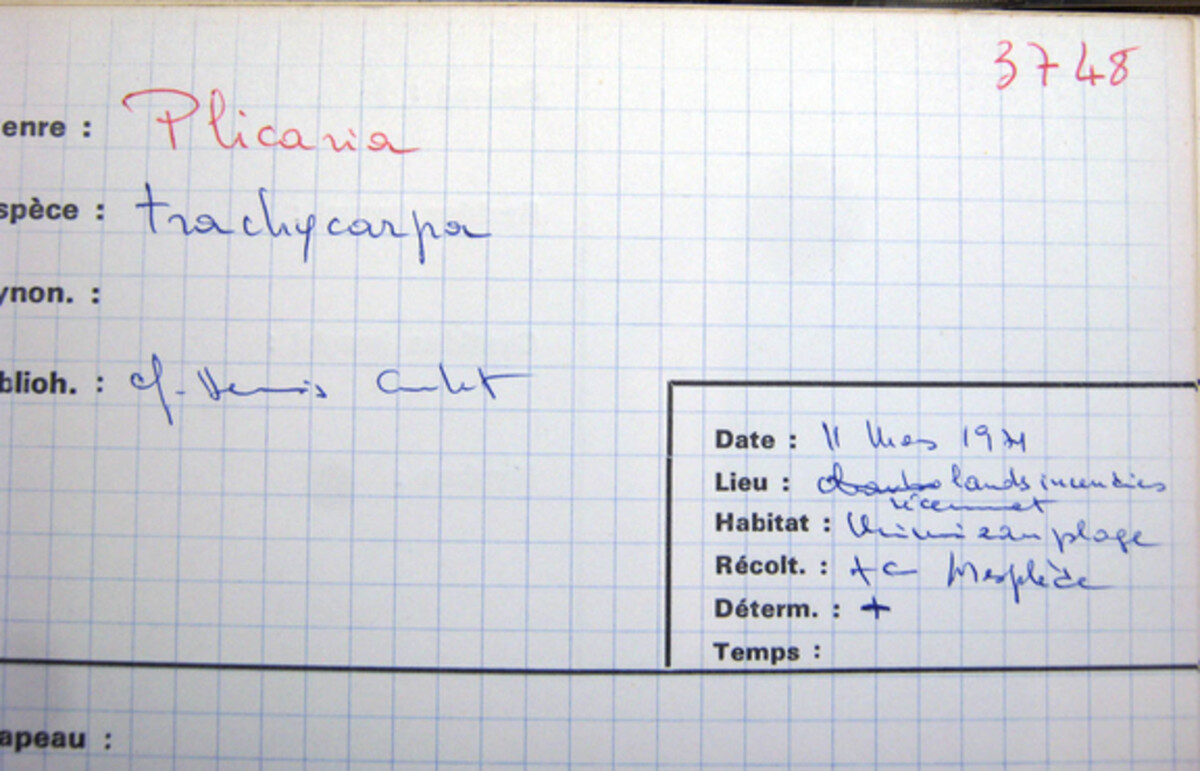 3748
enre : Plicaria
spèce : trachycarpa
ynon. :
blioh. : cf. Dennis
Date : 11 Mars 1971
Lieu : lands incendiées
récemment
Habitat : Mimizan plage
Récolt. : + Mesplède
Déterm. : +
Temps :
apeau :